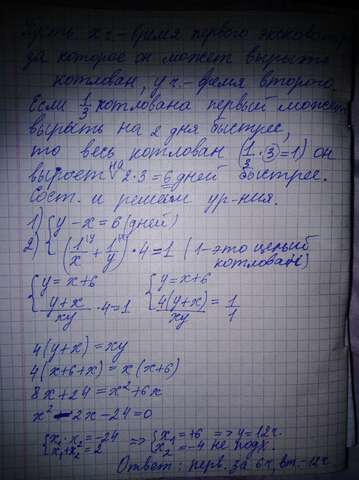 Пусть x г. - время первого экскаватора
за которое он может вырыть
котлован, y г. - время второго.
Если 1/3 котлована первый может
вырыть на 2 дня быстрее,
то весь котлован (1/3 · 3 = 1) он
выроет на 2·3 = 6 дней быстрее.
Сост. и решаем ур-ния.
1) { y - x = 6 (дней)
2) { (1/x + 1/y) · 4 = 1 (1 - это целый
котлован)
{ y = x+6 { y = x+6
{ y+x/xy · 4 = 1 { 4(y+x)/xy = 1/1
4(y+x) = xy
4(x+6+x) = x(x+6)
8x+24 = x²+6x
x² - 2x - 24 = 0
{ x₁·x₂ = -24 => { x₁ = +6 => y = 12г.
{ x₁+x₂ = 2 { x₂ = -4 не подх.
Ответ: перв. за 6г, вт. - 12г.